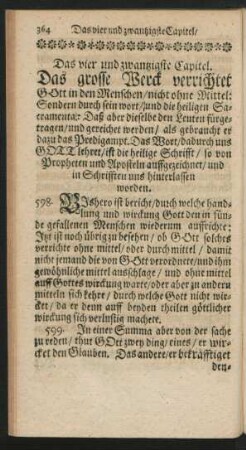 364 Das vier und zwantzigste Capitel/
Das vier und zwantzigste Capitel.
Das grosse Werck verrichtet
GOtt in den Menschen/nicht ohne Mittel:
Sondern durch sein wort/und die heiligen Sa-
cramenta: Daß aber dieselbe den Leuten fürge-
tragen/und gereichet werden/ als gebraucht er
dazu das Predigampt. Das Wort/dadurch uns
GOTT lehret/ist die heilige Schrifft / so von
Propheten und Aposteln auffgezeichnet/ und
in Schrifften uns hinterlassen
worden.
598. BIshero ist bericht/durch welche hand-
lung und wirckung Gott den in sün-
de gefallenen Menschen wiederum auffrichte:
Itzt ist noch übrig zu besehen/ ob GOtt solches
verrichte ohne mittel/ oder durch mittel / damit
nicht jemand die von GOtt verordnete/und ihm
gewöhnliche mittel ausschlage / und ohne mittel
auff Gottes wirckung warte/oder aber zu andern
mitteln sich kehre/durch welche Gott nicht wir-
cket/ da er denn auff beyden theilen göttlicher
wirckung sich verlustig machete.
599. In einer Summa aber von der sache
zu reden/ thut GOtt zwey ding/eines/ er wir-
cket den Glauben. Das andere/er bekräfftiget
den-